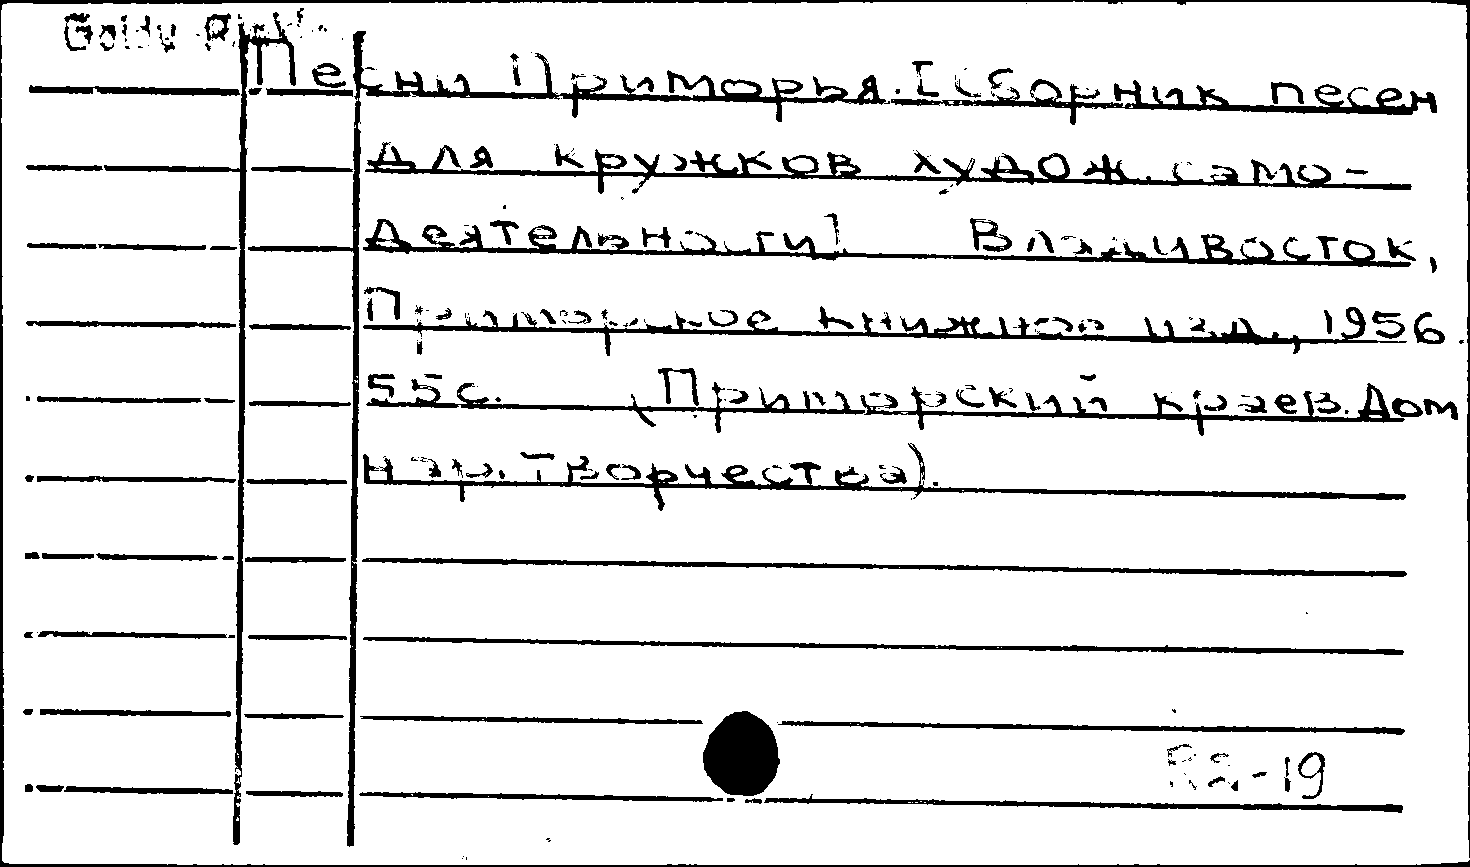 Песни Приморья. [Сборник песен
для кружков худож. само-
деятельности]. Владивосток,
Приморское книжное изд., 1956.
55 с. (Приморский краев. Дом
нар. творчества).
R2-19